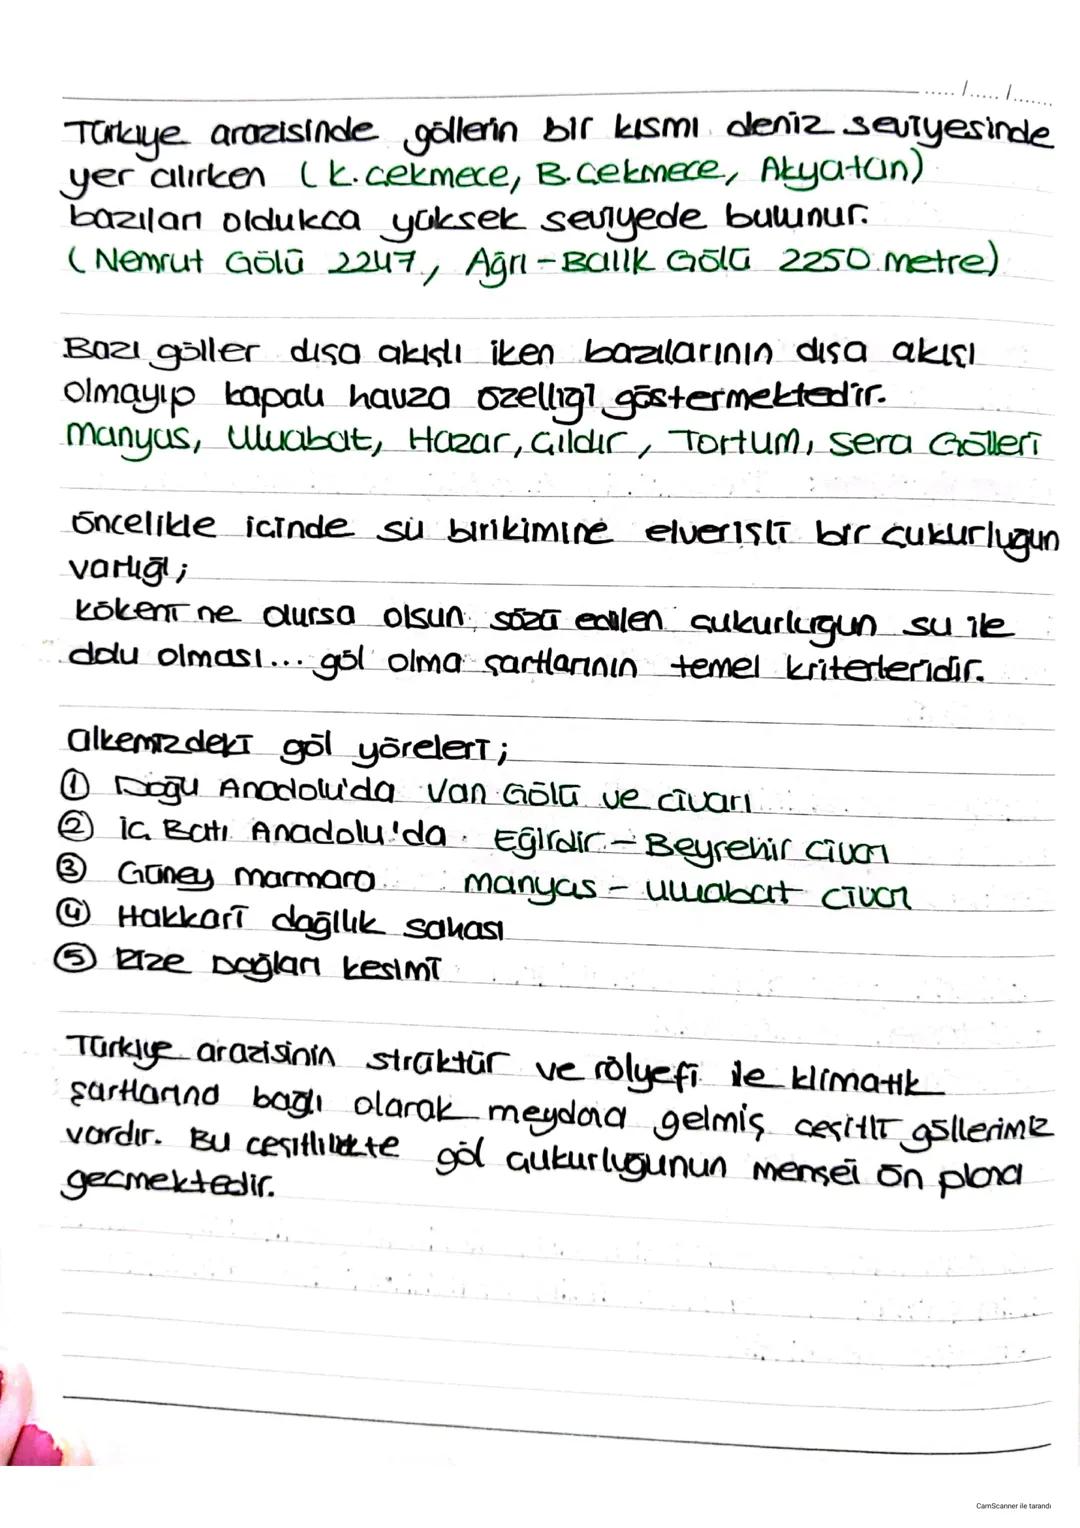 ...../...../.......
Türkiye arazisinde göllerin bir kısmı deniz seviyesinde
yer alırken (K.çekmece, B.çekmece, Akyatan)
bazıları oldukca yüksek seviyede bulunur.
(Nemrut Gölü 2247, Ağrı-Balık Gölü 2250 metre)
Bazı göller dışa akışlı iken bazılarının dışa akışı
olmayıp kapalı havza özelliği göstermektedir.
Manyas, Uluabat, Hazar, Çıldır, Tortum, Sera Gölleri
öncelikle içinde su birikimine elverişli bir çukurluğun
varlığı;
kökeni ne olursa olsun, sözü edilen çukurluğun su ile
dolu olması... göl olma şartlarının temel kriterleridir.
ülkemizdeki göl yöreleri;
① Doğu Anadolu'da Van Gölü ve civarı
② İç Batı Anadolu'da Eğirdir-Beyşehir civarı
③ Güney marmara manyas-uluabat civarı
④ Hakkari dağlık sahası
⑤ Rize Dağları kesimi
Türkiye arazisinin strüktür ve rölyefi ile klimatik
şartlarına bağlı olarak meydana gelmiş çeşitli göllerimiz
vardır. Bu çeşitlilikte göl çukurluğunun menşei ön plana
geçmektedir.
CamScanner ile tarandı